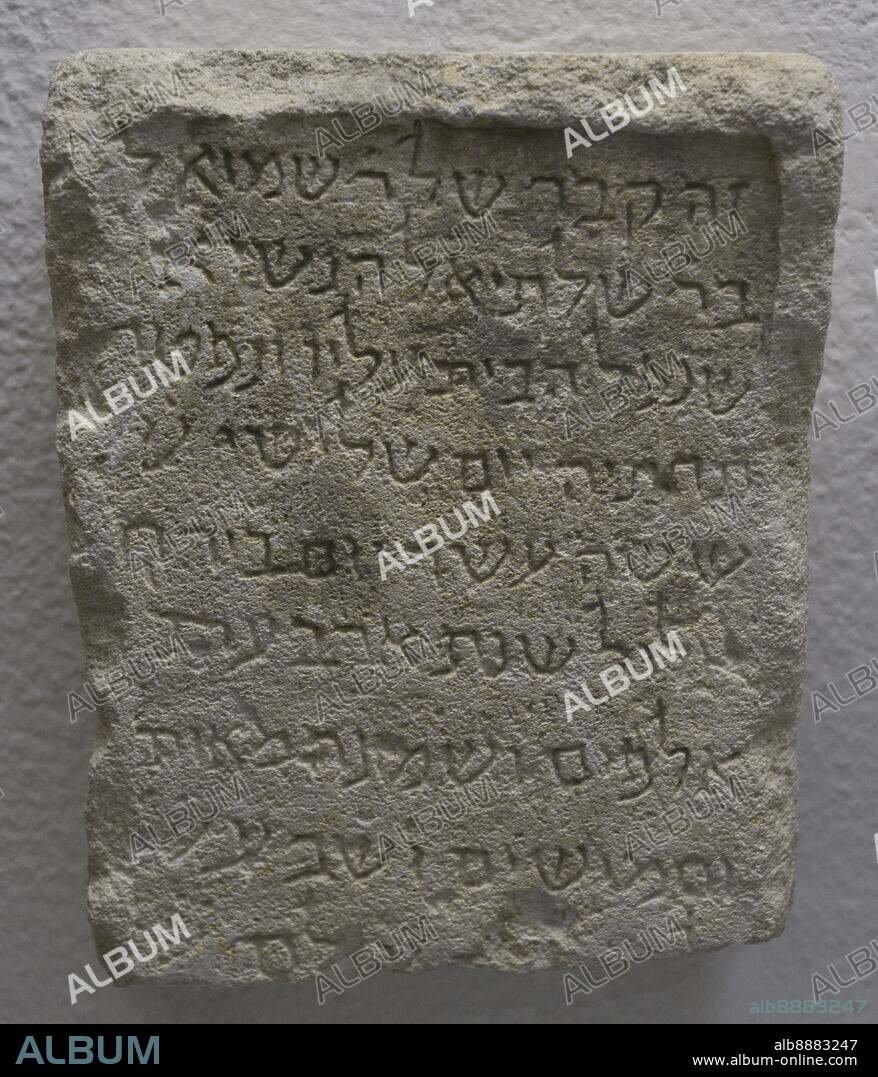 זה קבר של ר שמואל
בר שלתיאל הנשיא
שנפל הבית עליו
תחתיה יום שלושי
ששה עשר יום בירח
שנת ארבעה
אלפים ושמנה מאות
וחמושים ושבע
ALBUM
alb8883247
ALBUM
alb8883247
www.album-online.com